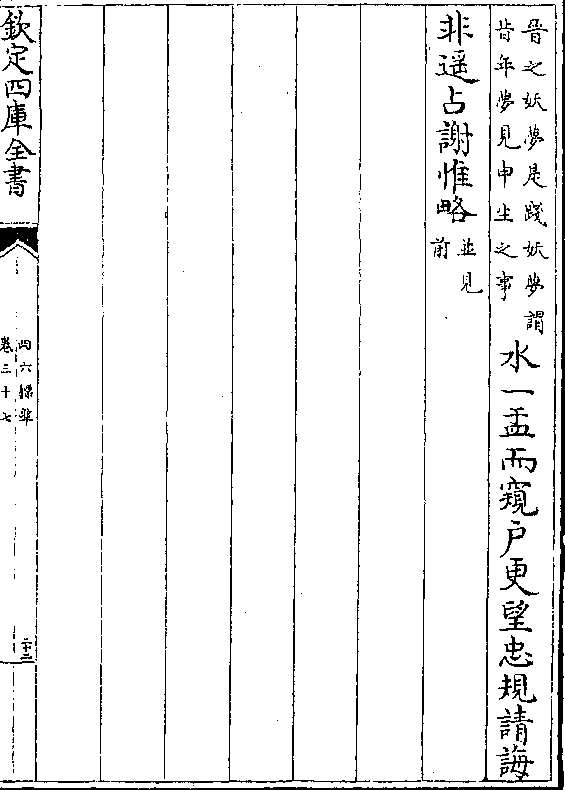 晉之妖夢是踐妖夢謂
昔年夢見申生之事
水一盂而窺戶更望忠規請誨
非遥占謝惟略
並見
前
欽定四庫全書
四六標準
卷三十七
二十二